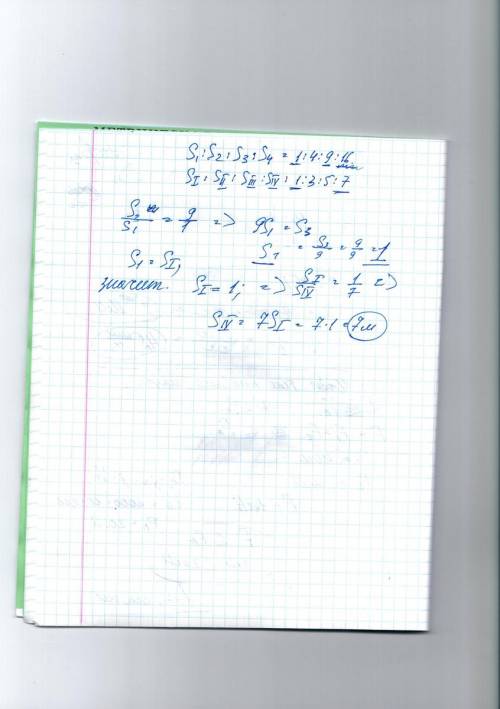 S₁ : S₂ : S₃ : S₄ = 1 : 4 : 9 : 16
S_I : S_II : S_III : S_IV : 1 : 3 : 5 : 7
S₃/S₁ = 9/1 => 9S₁ = S₃
S₁ = S₃/9 = 9/9 = 1
S₁ = S_I,
значит. S_I = 1; => S_I/S_IV = 1/7 =>
S_IV = 7S_I = 7·1 = 7м